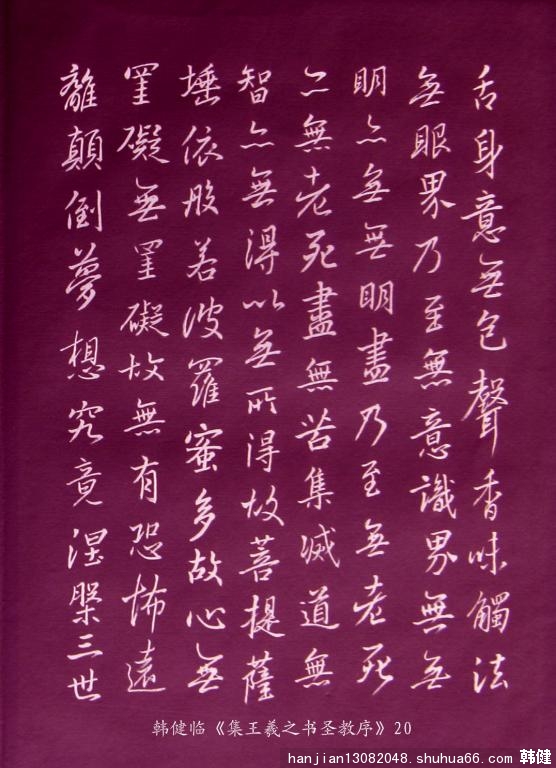 舌身意無色聲香味觸法
無眼界乃至無意識界無無
明亦無無明盡乃至無老死
亦無老死盡無苦集滅道無
智亦無得以無所得故菩提薩
埵依般若波羅蜜多故心無
罣礙無罣礙故無有恐怖遠
離顛倒夢想究竟涅槃三世
韩健临《集王羲之书圣教序》20
hanjian13082048.shuhua66.com 韩健